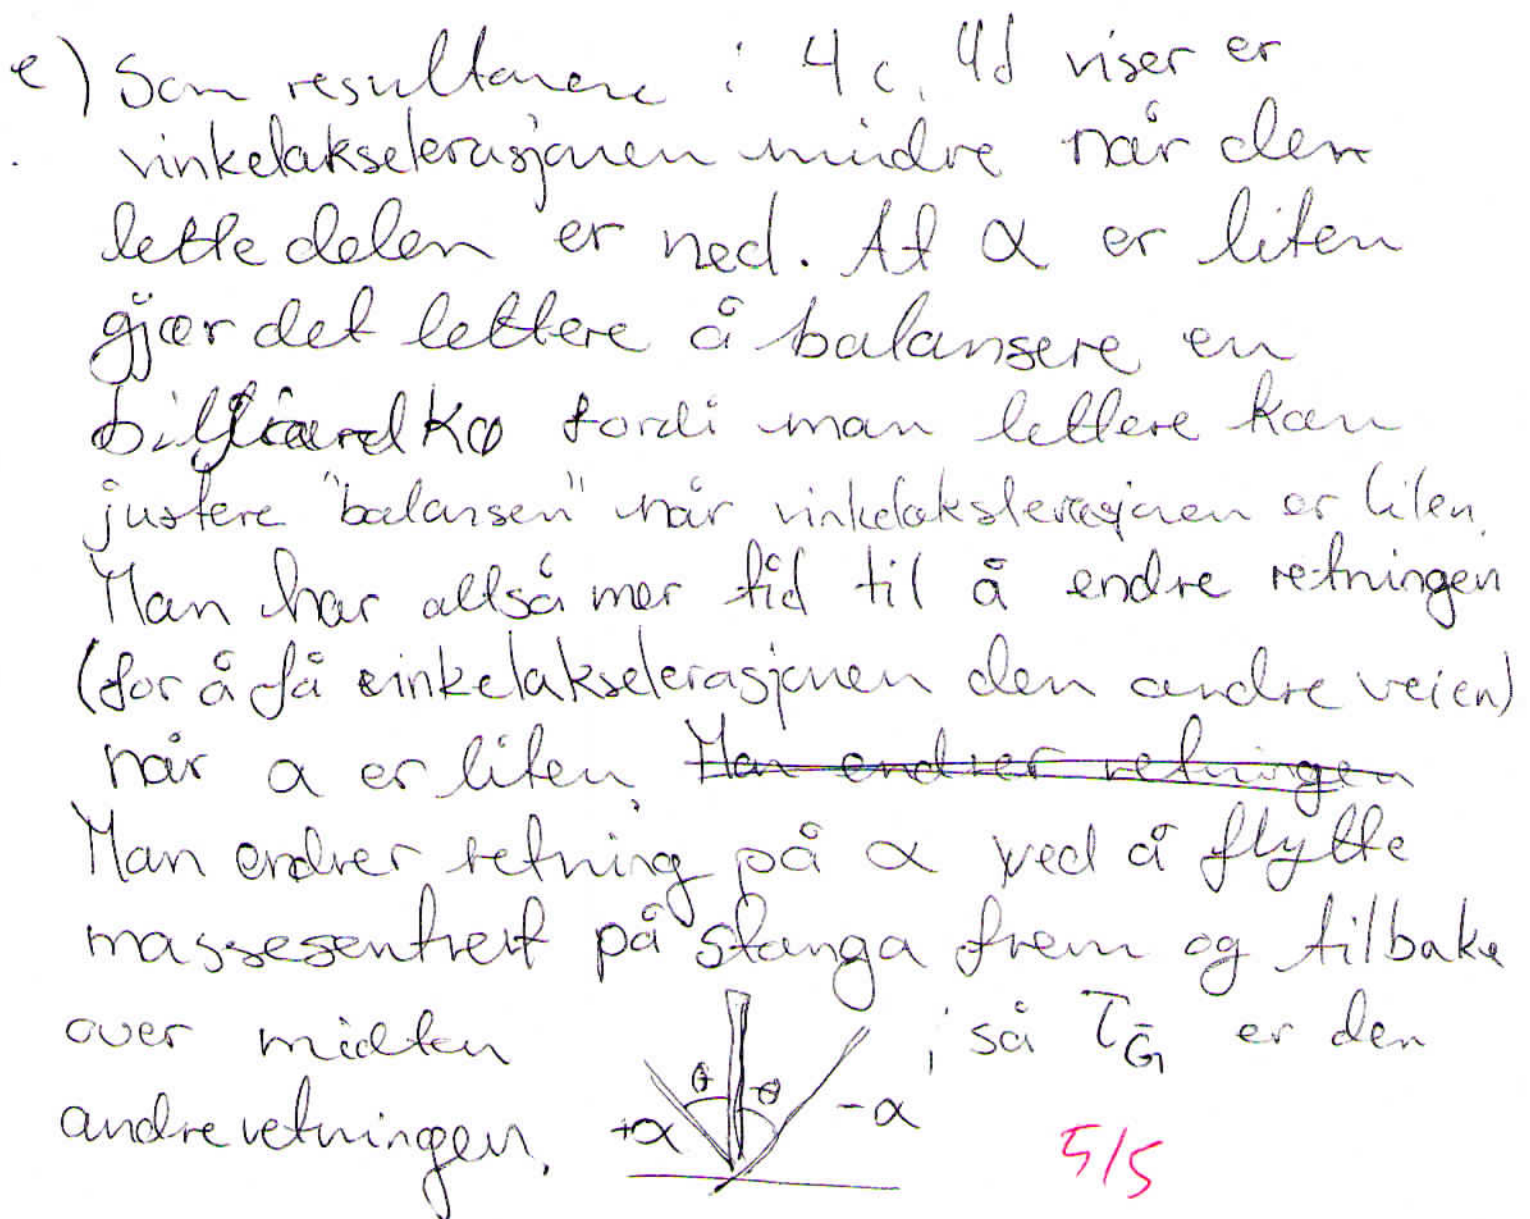 e) Som resultatene i 4c, 4d viser er
vinkelakselerasjonen mindre når den
lette delen er ned. At α er liten
gjør det lettere å balansere en
billiardkø fordi man lettere kan
justere "balansen" når vinkelakslerasjonen er liten.
Man har altså mer tid til å endre retningen
(for å få vinkelakselerasjonen den andre veien)
når α er liten. ~~Man endrer retningen~~
Man endrer retning på α ved å flytte
massesentret på stanga frem og tilbake
over midten , så τ_G er den
andre retningen.
θ -θ
+α -α
5/5